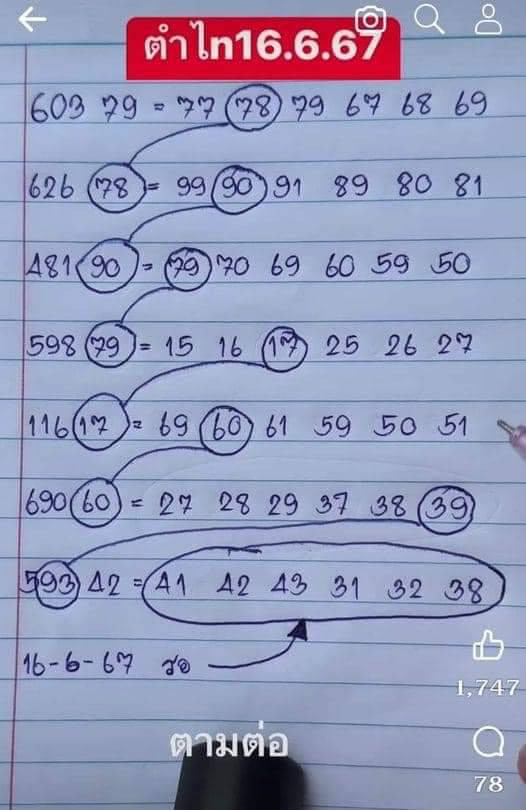 ตำไก16.6.67
603 79 = 77 78 79 67 68 69
626 78 = 99 90 91 89 80 81
481 90 = 79 70 69 60 59 50
598 79 = 15 16 17 25 26 27
116 17 = 69 60 61 59 50 51
690 60 = 27 28 29 37 38 39
593 42 = 41 42 43 31 32 38
16-6-67 รอ
ตามต่อ
1,747
78